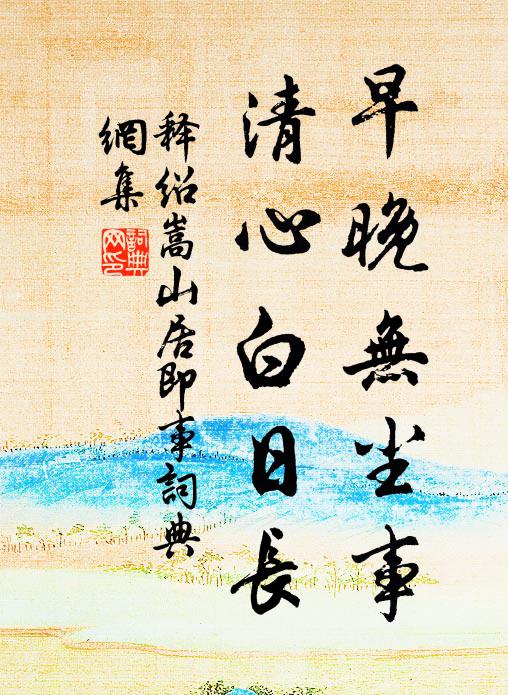 早晚無尘事
清心白日長
释绍嵩山居即事詞典
網集
詞典
网印